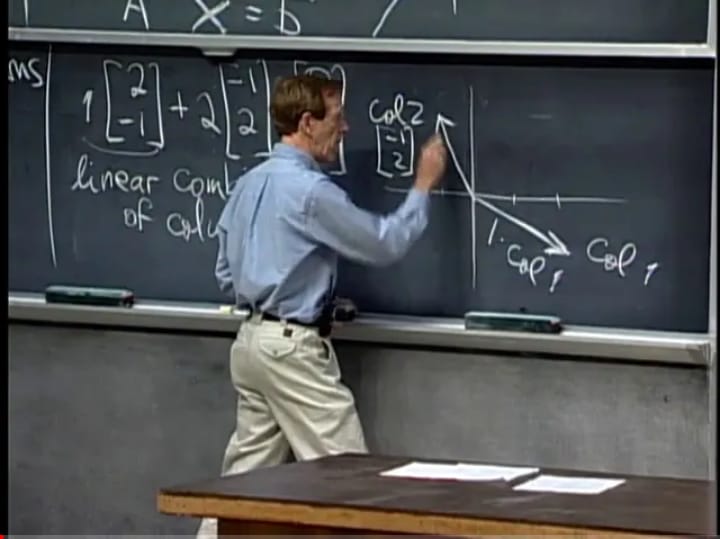 A X = b
ms
1 [2 -1] + 2 [-1 2]
linear comb
of colu
col 2
[-1 2]
1. Col 1
Col 1